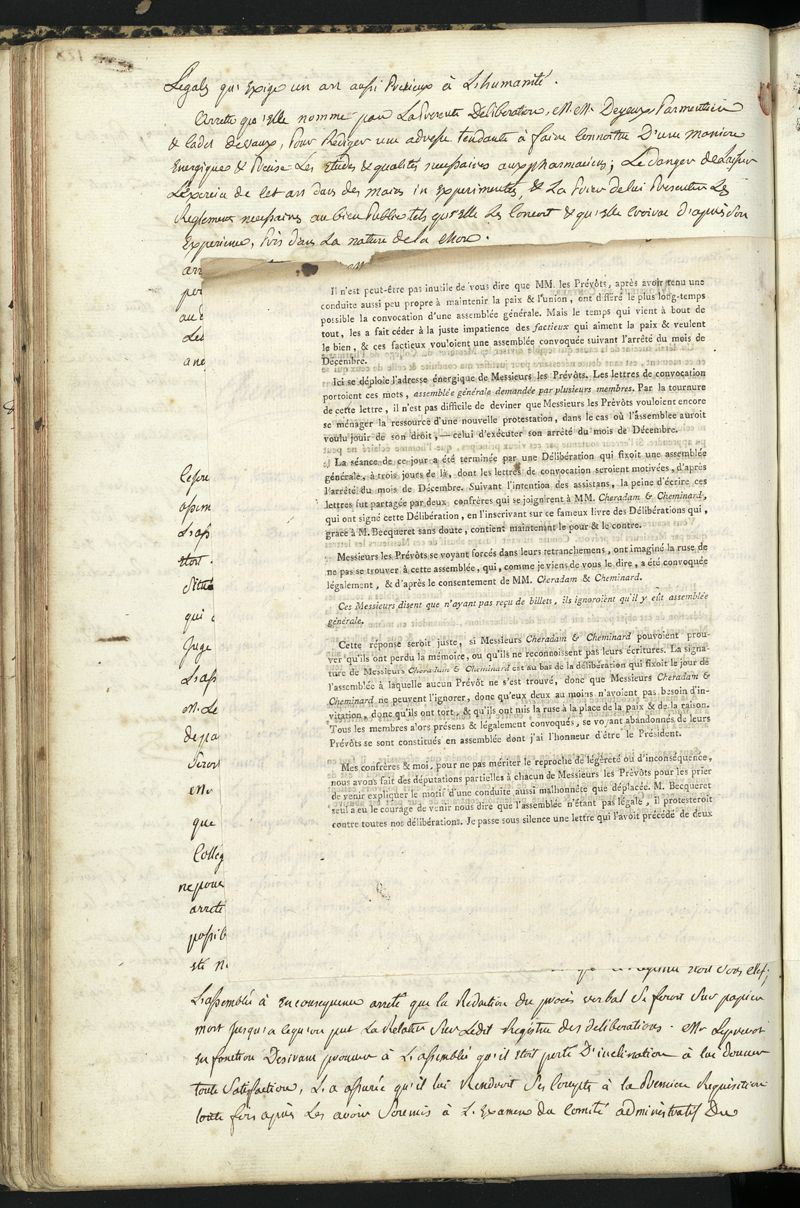 Legales qu'Exige un art aussi Precieux à L'humanité.
Arrette qu'Elle nomme par La Presente Deliberation, M.M. Deyeux Parmentier
& Cadet Devaux, Pour Rediger une adresse tendante à faire Connoitre D'une maniere
Energique & Precise Les Etudes & qualités necessaires aux pharmaciens; Le danger de Laisser
L'Exercice de Cet art dans des mains in Experimentés, & La Prier de lui Presenter Les
Reglemens necessaires au bien Public tels qu'Elle Les Concoit & qu'Elle Croira d'après Son
Experience, Pris dans La nature de la Chose.
Il n'est peut-être pas inutile de vous dire que MM. les Prévôts, après avoir tenu une
conduite aussi peu propre à maintenir la paix & l'union, ont différé le plus long-temps
possible la convocation d'une assemblée générale. Mais le temps qui vient à bout de
tout, les a fait céder à la juste impatience des factieux qui aiment la paix & veulent
le bien, & ces factieux vouloient une assemblée convoquée suivant l'arrêté du mois de
Décembre.
Ici se déploie l'adresse énergique de Messieurs les Prévôts. Les lettres de convocation
portoient ces mots, assemblée générale demandée par plusieurs membres. Par la tournure
de cette lettre, il n'est pas difficile de deviner que Messieurs les Prévôts vouloient encore
se ménager la ressource d'une nouvelle protestation, dans le cas où l'assemblée auroit
voulu jouir de son droit, — celui d'exécuter son arrêté du mois de Décembre.
La séance de ce jour a été terminée par une Délibération qui fixoit une assemblée
générale, à trois jours de là, dont les lettres de convocation seroient motivées, d'après
l'arrêté du mois de Décembre. Suivant l'intention des assistans, la peine d'écrire ces
lettres fut partagée par deux confrères qui se joignirent à MM. Cheradam & Cheminard,
qui ont signé cette Délibération, en l'inscrivant sur ce fameux livre des Délibérations qui,
grace à M. Becqueret sans doute, contient maintenant le pour & le contre.
Messieurs les Prévôts se voyant forcés dans leurs retranchemens, ont imaginé la ruse de
ne pas se trouver à cette assemblée, qui, comme je viens de vous le dire, a été convoquée
légalement, & d'après le consentement de MM. Cheradam & Cheminard.
Ces Messieurs disent que n'ayant pas reçu de billets, ils ignoroient qu'il y eût assemblée
générale.
Cette réponse seroit juste, si Messieurs Cheradam & Cheminard pouvoient prou-
ver qu'ils ont perdu la mémoire, ou qu'ils ne reconnoissent pas leurs écritures. La signa-
ture de Messieurs Cheradam & Cheminard est au bas de la délibération qui fixoit le jour de
l'assemblée à laquelle aucun Prévôt ne s'est trouvé, donc que Messieurs Cheradam &
Cheminard ne peuvent l'ignorer, donc qu'eux deux au moins n'avoient pas besoin d'in-
vitation, donc qu'ils ont tort, & qu'ils ont mis la ruse à la place de la paix & de la raison.
Tous les membres alors présens & légalement convoqués, se voyant abandonnés de leurs
Prévôts se sont constitués en assemblée dont j'ai l'honneur d'être le Président.
Mes confrères & moi, pour ne pas mériter le reproche de légéreté ou d'inconséquence,
nous avons fait des députations partielles à chacun de Messieurs les Prévôts pour les prier
de venir expliquer le motif d'une conduite aussi malhonnête que déplacée. M. Becqueret
seul a eu le courage de venir nous dire que l'assemblée n'étant pas légale, il protesteroit
contre toutes nos délibérations. Je passe sous silence une lettre qui l'avoit précédé de deux
L'assemblée à En consequence arreté que la Redaction du procès verbal Se feroit Sur papier
mort jusqu'a ce qu'on put La Relater Sur Ledit Registre des deliberations. Mr Leprevost
En fonction Desirant prouver à L'assemblée qu'il Etoit porté D'inclination à lui donner
toute Satisfaction, L'a assurée qu'il lui Rendroit Ses Comptes à la Premiere Requisition
toute fois après Les avoir Soumis à L'Examen du Comité administratif Du